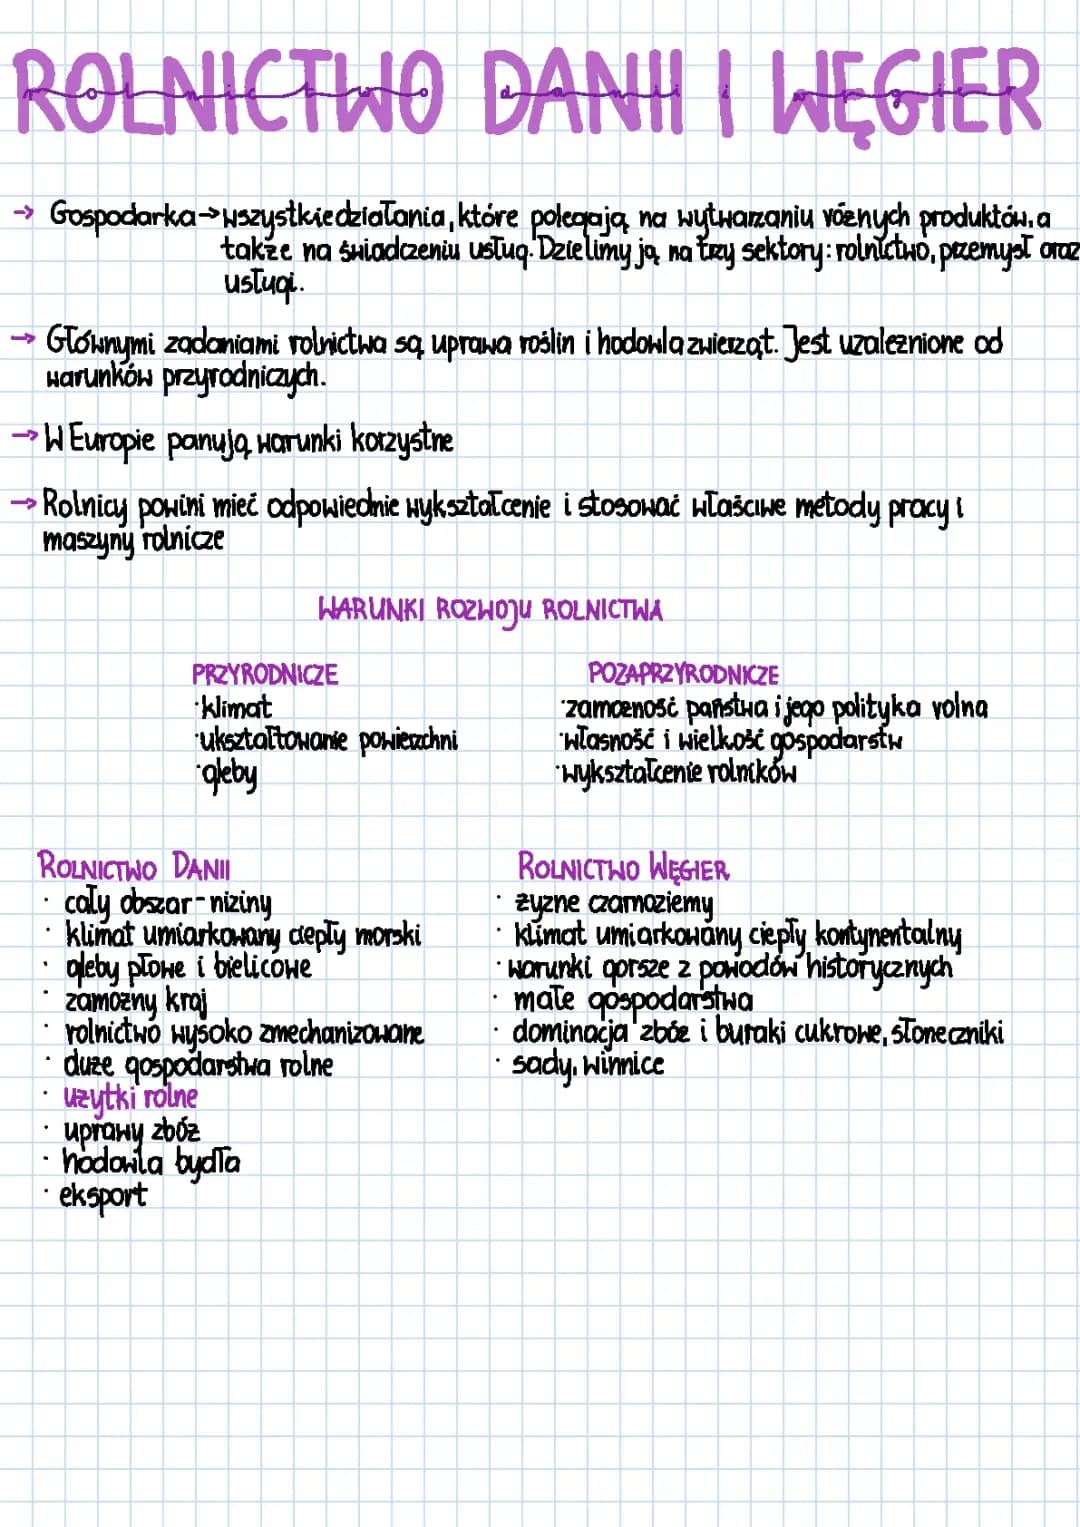 ROLNICTWO DANII I WĘGIER
→ Gospodarka→wszystkie działania, które polegają na wytwarzaniu różnych produktów, a
także na świadczeniu usług. Dzielimy ją na trzy sektory: rolnictwo, przemysł oraz
usługi.
→ Głównymi zadaniami rolnictwa są uprawa roślin i hodowla zwierząt. Jest uzależnione od
warunków przyrodniczych.
→ W Europie panują warunki korzystne
→ Rolnicy powini mieć odpowiednie wykształcenie i stosować właściwe metody pracy i
maszyny rolnicze
WARUNKI ROZWOJU ROLNICTWA
PRZYRODNICZE
·klimat
·ukształtowanie powierzchni
·gleby
POZAPRZYRODNICZE
·zamożność państwa i jego polityka rolna
·własność i wielkość gospodarstw
·wykształcenie rolników
ROLNICTWO DANII
· cały obszar - niziny
· klimat umiarkowany ciepły morski
· gleby płowe i bielicowe
· zamożny kraj
· rolnictwo wysoko zmechanizowane
· duże gospodarstwa rolne
· użytki rolne
· uprawy zbóż
· hodowla bydła
· eksport
ROLNICTWO WĘGIER
· żyzne czarnoziemy
· klimat umiarkowany ciepły kontynentalny
· warunki gorsze z powodów historycznych
· małe gospodarstwa
· dominacja zbóż i buraki cukrowe, słoneczniki
· sady, winnice